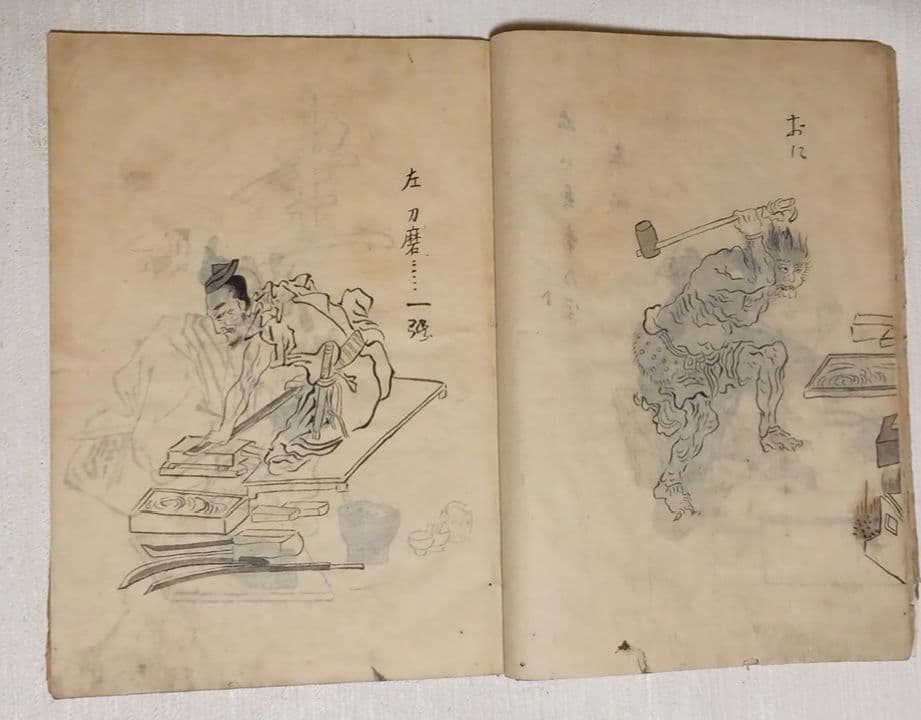 おに
左 刀磨……一強